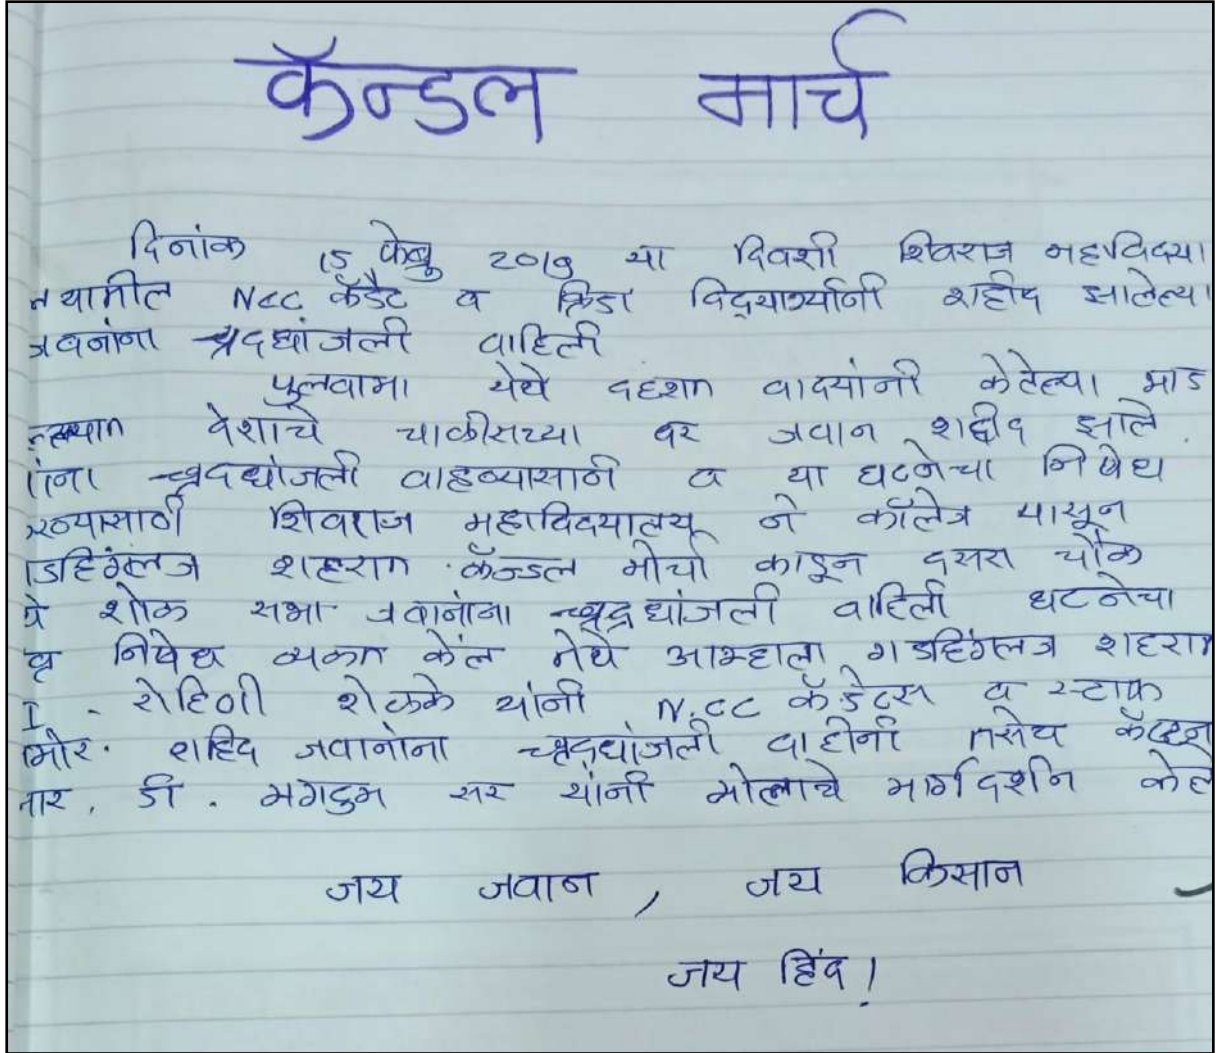 कॅन्डल मार्च
दिनांक 15 फेब्रु 2019 या दिवशी शिवराज महाविदया
NCC कॅडेट व क्रिडा विद्यार्थ्यांनी शहीद झालेल्या
श्रद्धांजली वाहिली
पुलवामा येथे दहशत वादयांनी केलेल्या भ्याड
देशाचे चाळीसच्या वर जवान शहीद झाले.
श्रद्धांजली वाहण्यासाठी व या घटनेचा निषेध
करण्यासाठी शिवराज महाविदयालय ने कॉलेज पासून
डहिंग्लज शहरात कॅन्डल मोर्चा काढून दसरा चौक
शोक सभा जवानांना श्रद्धांजली वाहिली घटनेचा
निषेध व्यक्त केलं तेथे आम्हाला गडहिंग्लज शहरात
I - रोहिणी शेळके यांनी N.CC कॅडेटस व स्टाफ
शहिद जवानांना श्रद्धांजली वाहीली तसेच कॅप्टन
आर. डी. मगदुम सर यांनी मोलाचे मार्गदर्शन केले
जय जवान, जय किसान
जय हिंद!